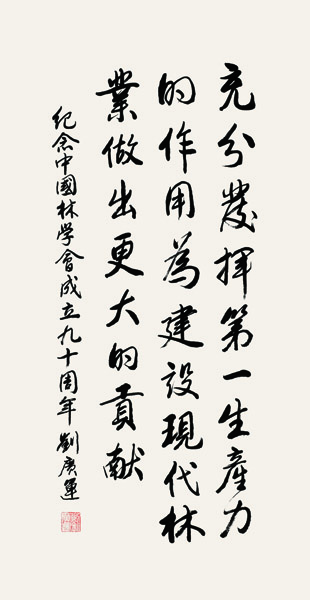 充分發揮第一生產力
的作用為建設現代林
業做出更大的貢献
纪念中國林学會成立九十周年 劉廣運